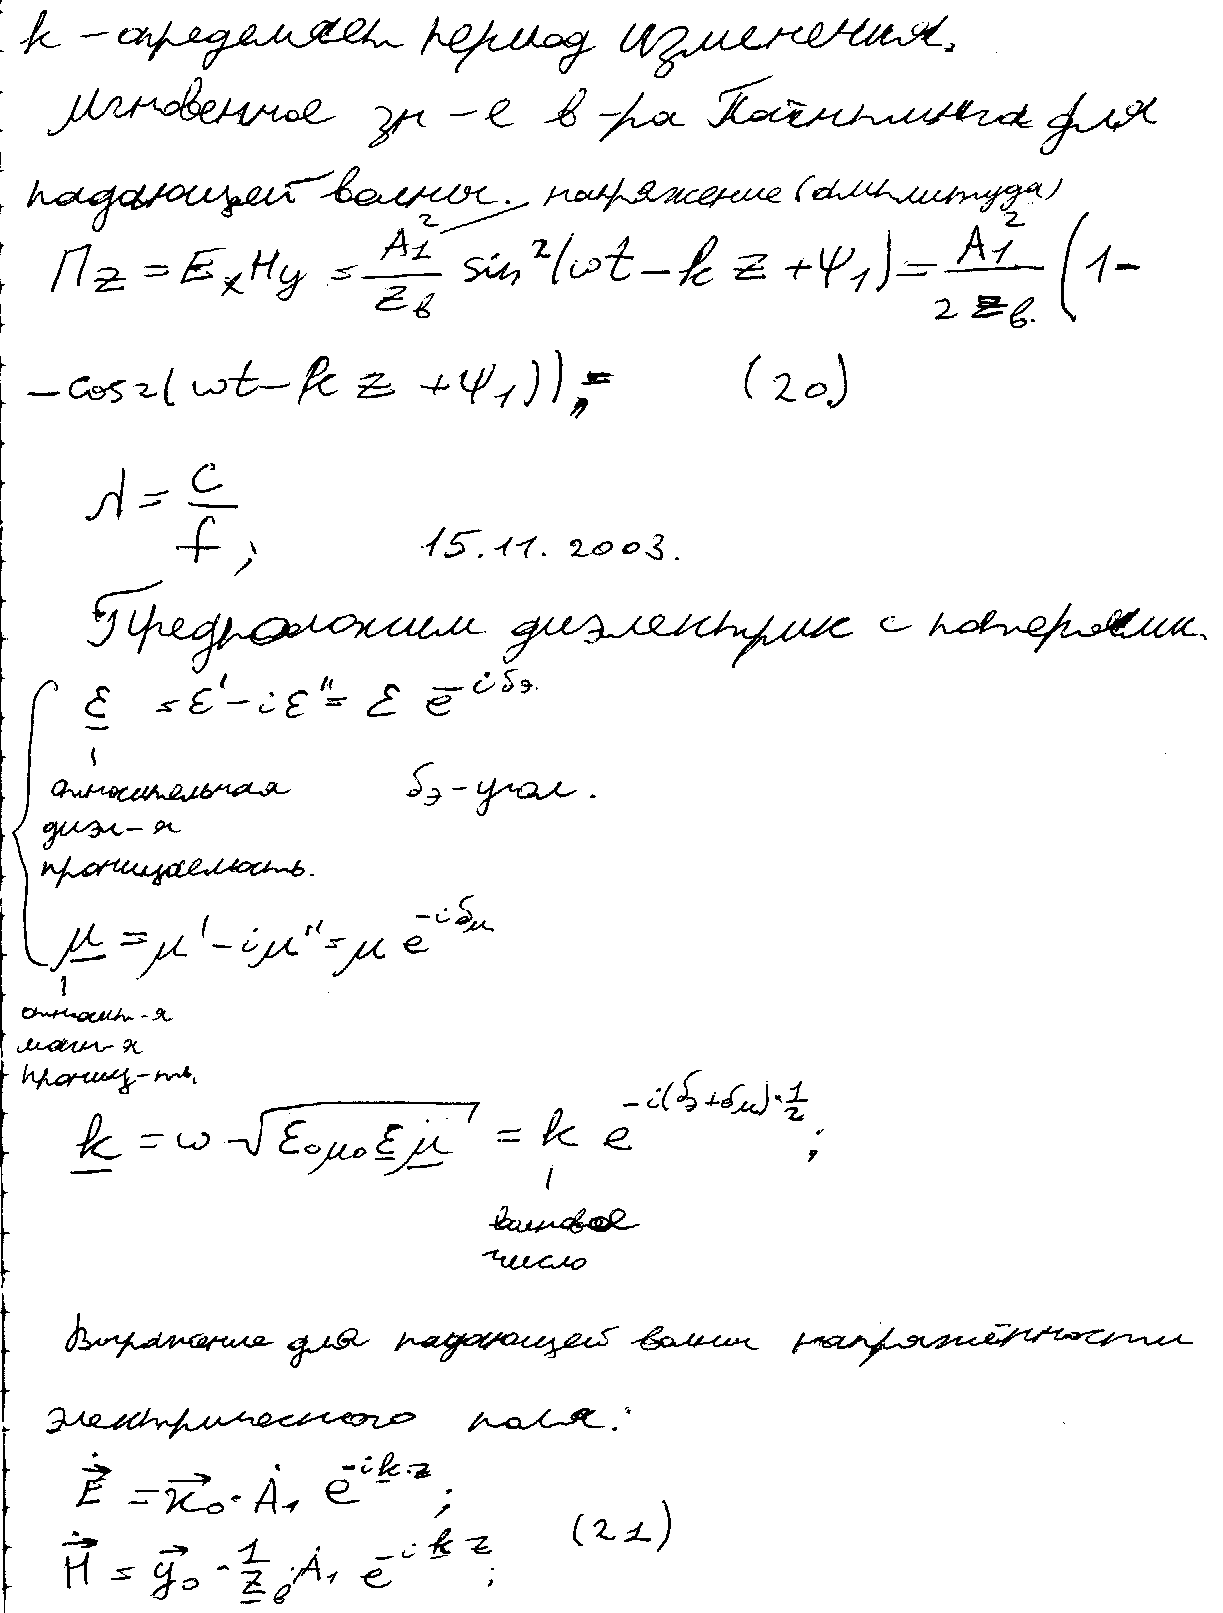 k – определяет период изменения.
Мгновенное зн-е в-ра Пойнтинга для
падающей волны. напряжение (амплитуда)
Пz = ExHy = A1²/Zв sin²(ωt – kz + ψ1) = A1²/2Zв. (1 –
– cos2(ωt – kz + ψ1)); (20)
λ = c/f; 15.11.2003.
Предположим диэлектрик с потерями.
ε = ε' – iε" = ε e^–iδэ.
относительная δэ – угол.
диэл-я
проницаемость.
μ = μ' – iμ" = μ e^–iδμ
относит-я
маг-я
прониц-ть.
k = ω √ε0μ0εμ = k e^–i(δэ+δμ)·1/2;
волновое
число
Выражение для падающей волны напряжённости
электрического поля:
E = x0 · A1 e^–ik·z;
H = y0 · 1/Zв A1 e^–ikz; (21)